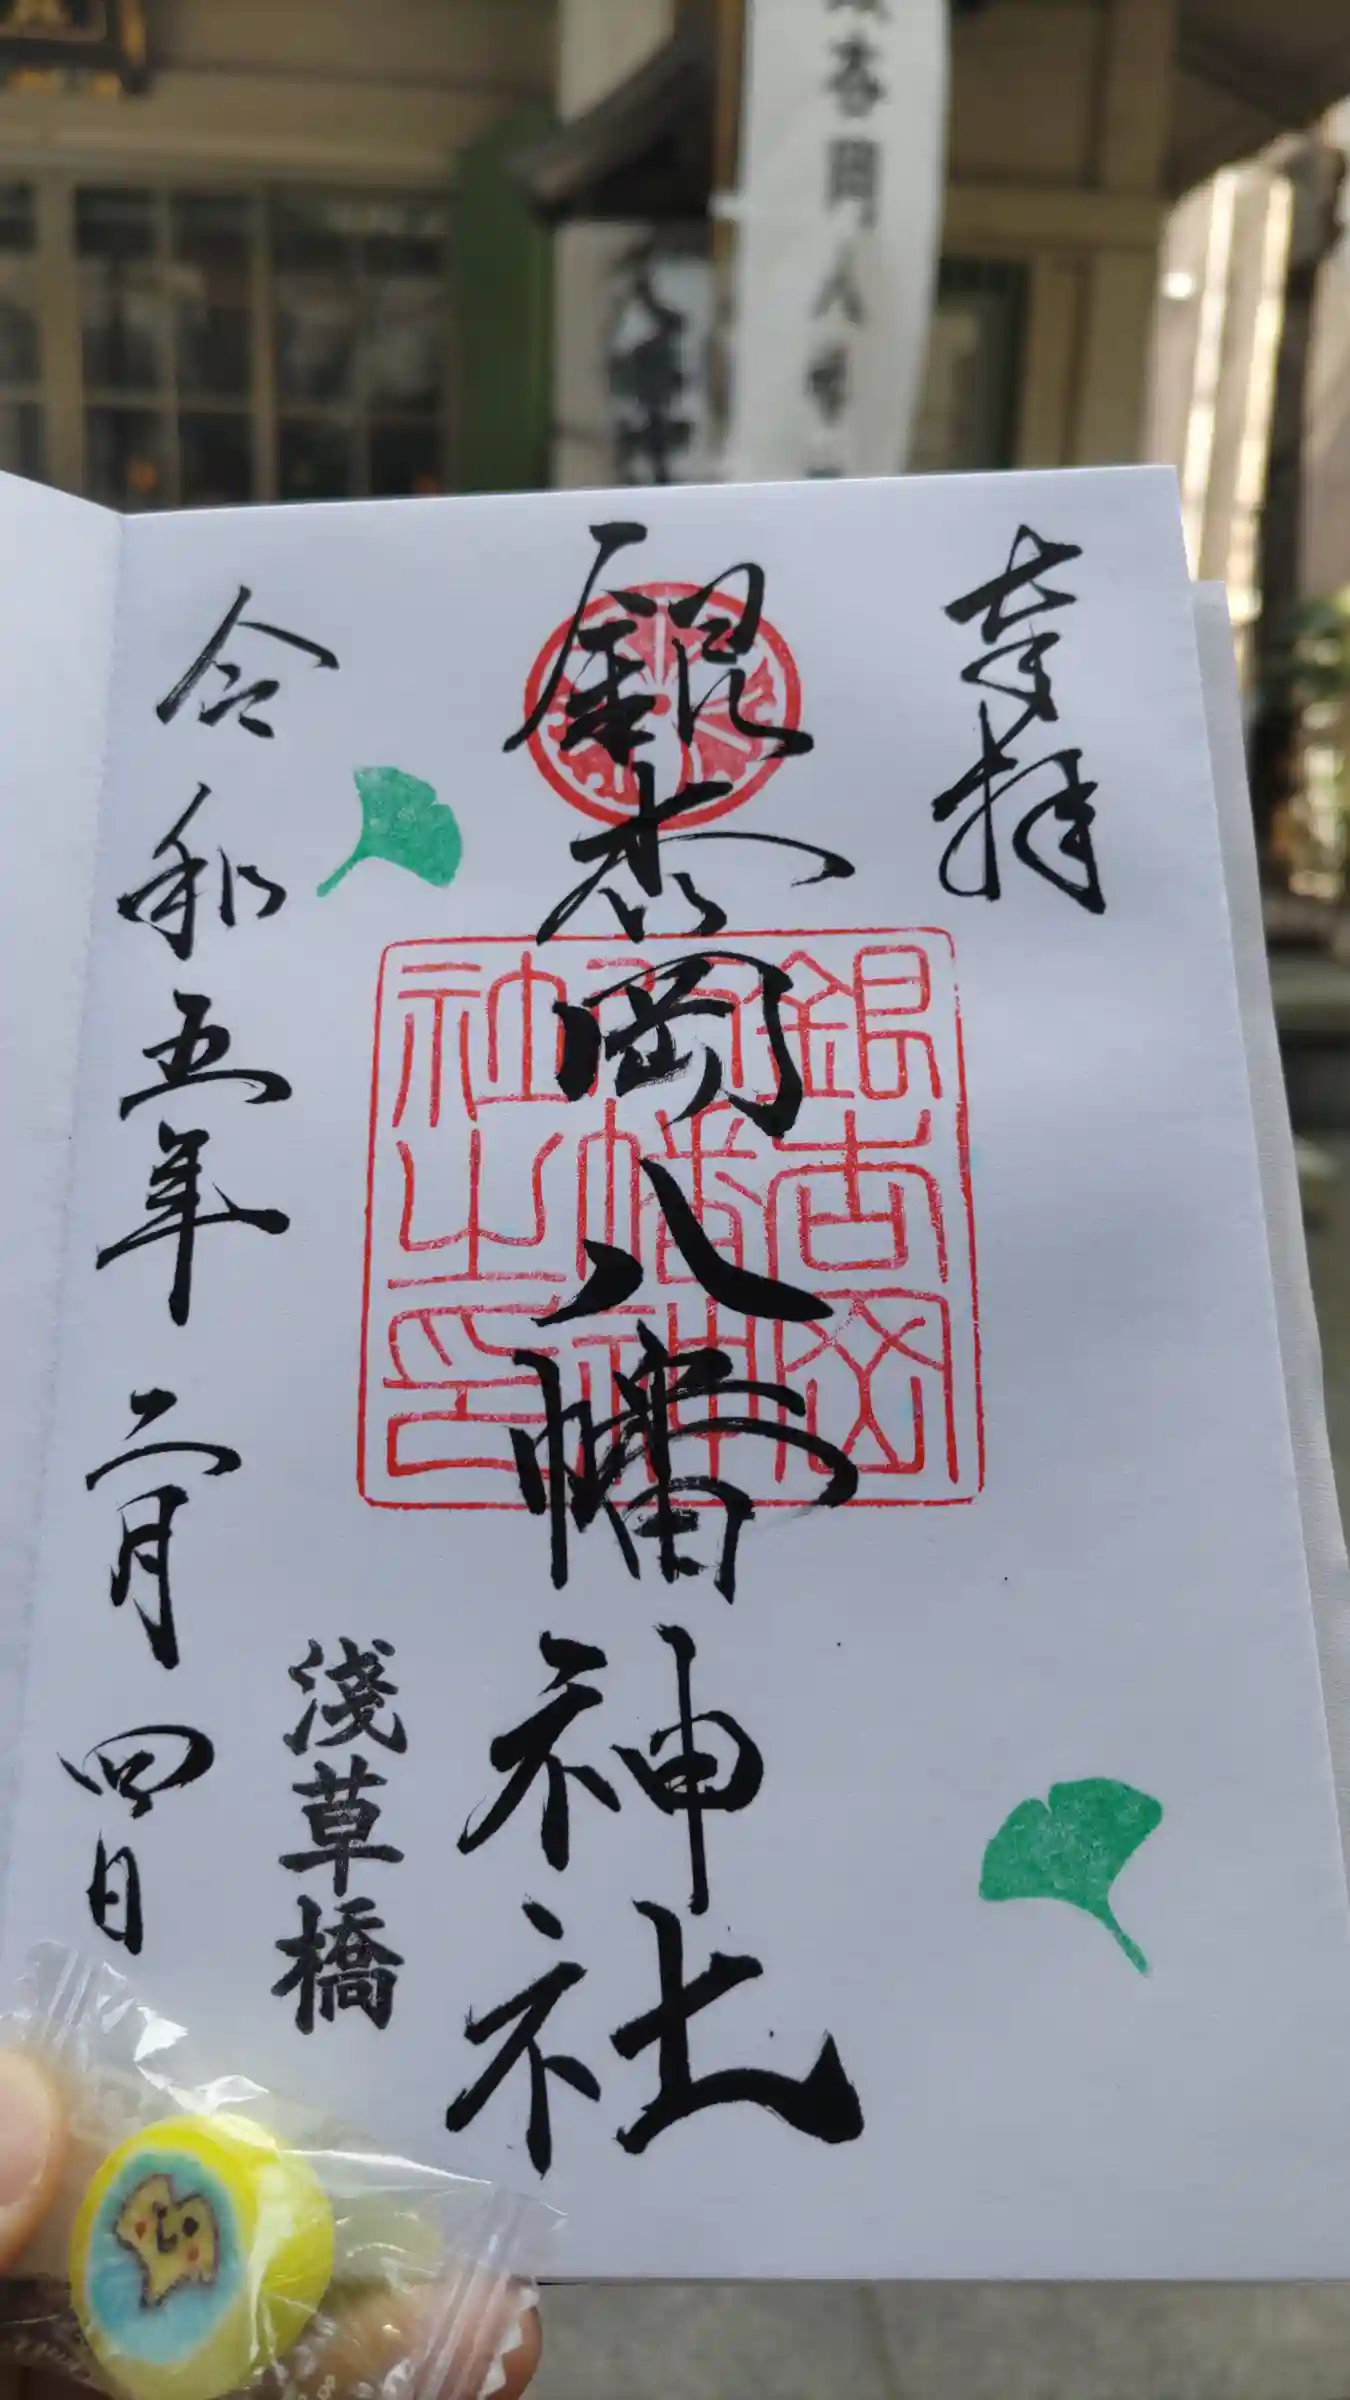 奉拝
銀杏岡八幡神社
銀杏岡
八幡神
社之印
浅草橋
令和五年二月四日